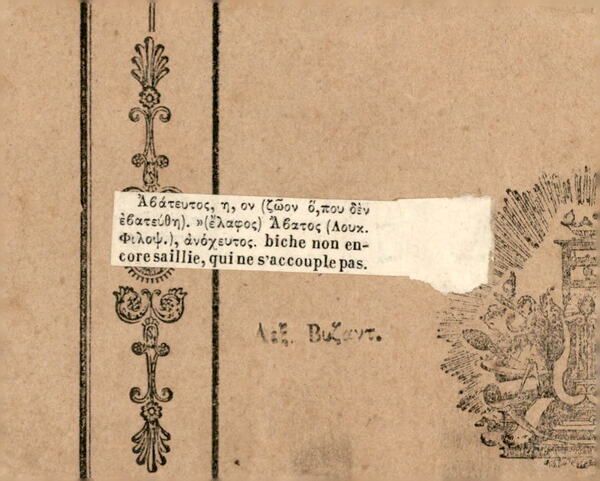 Ἀβάτευτος, η, ον (ζῶον ὅ,που δὲν
ἐβατεύθη). »(ἔλαφος) Ἄβατος (Λουκ.
Φιλοψ.), ἀνόχευτος. biche non en-
core saillie, qui ne s'accouple pas.
Λεξ. Βυζαντ.